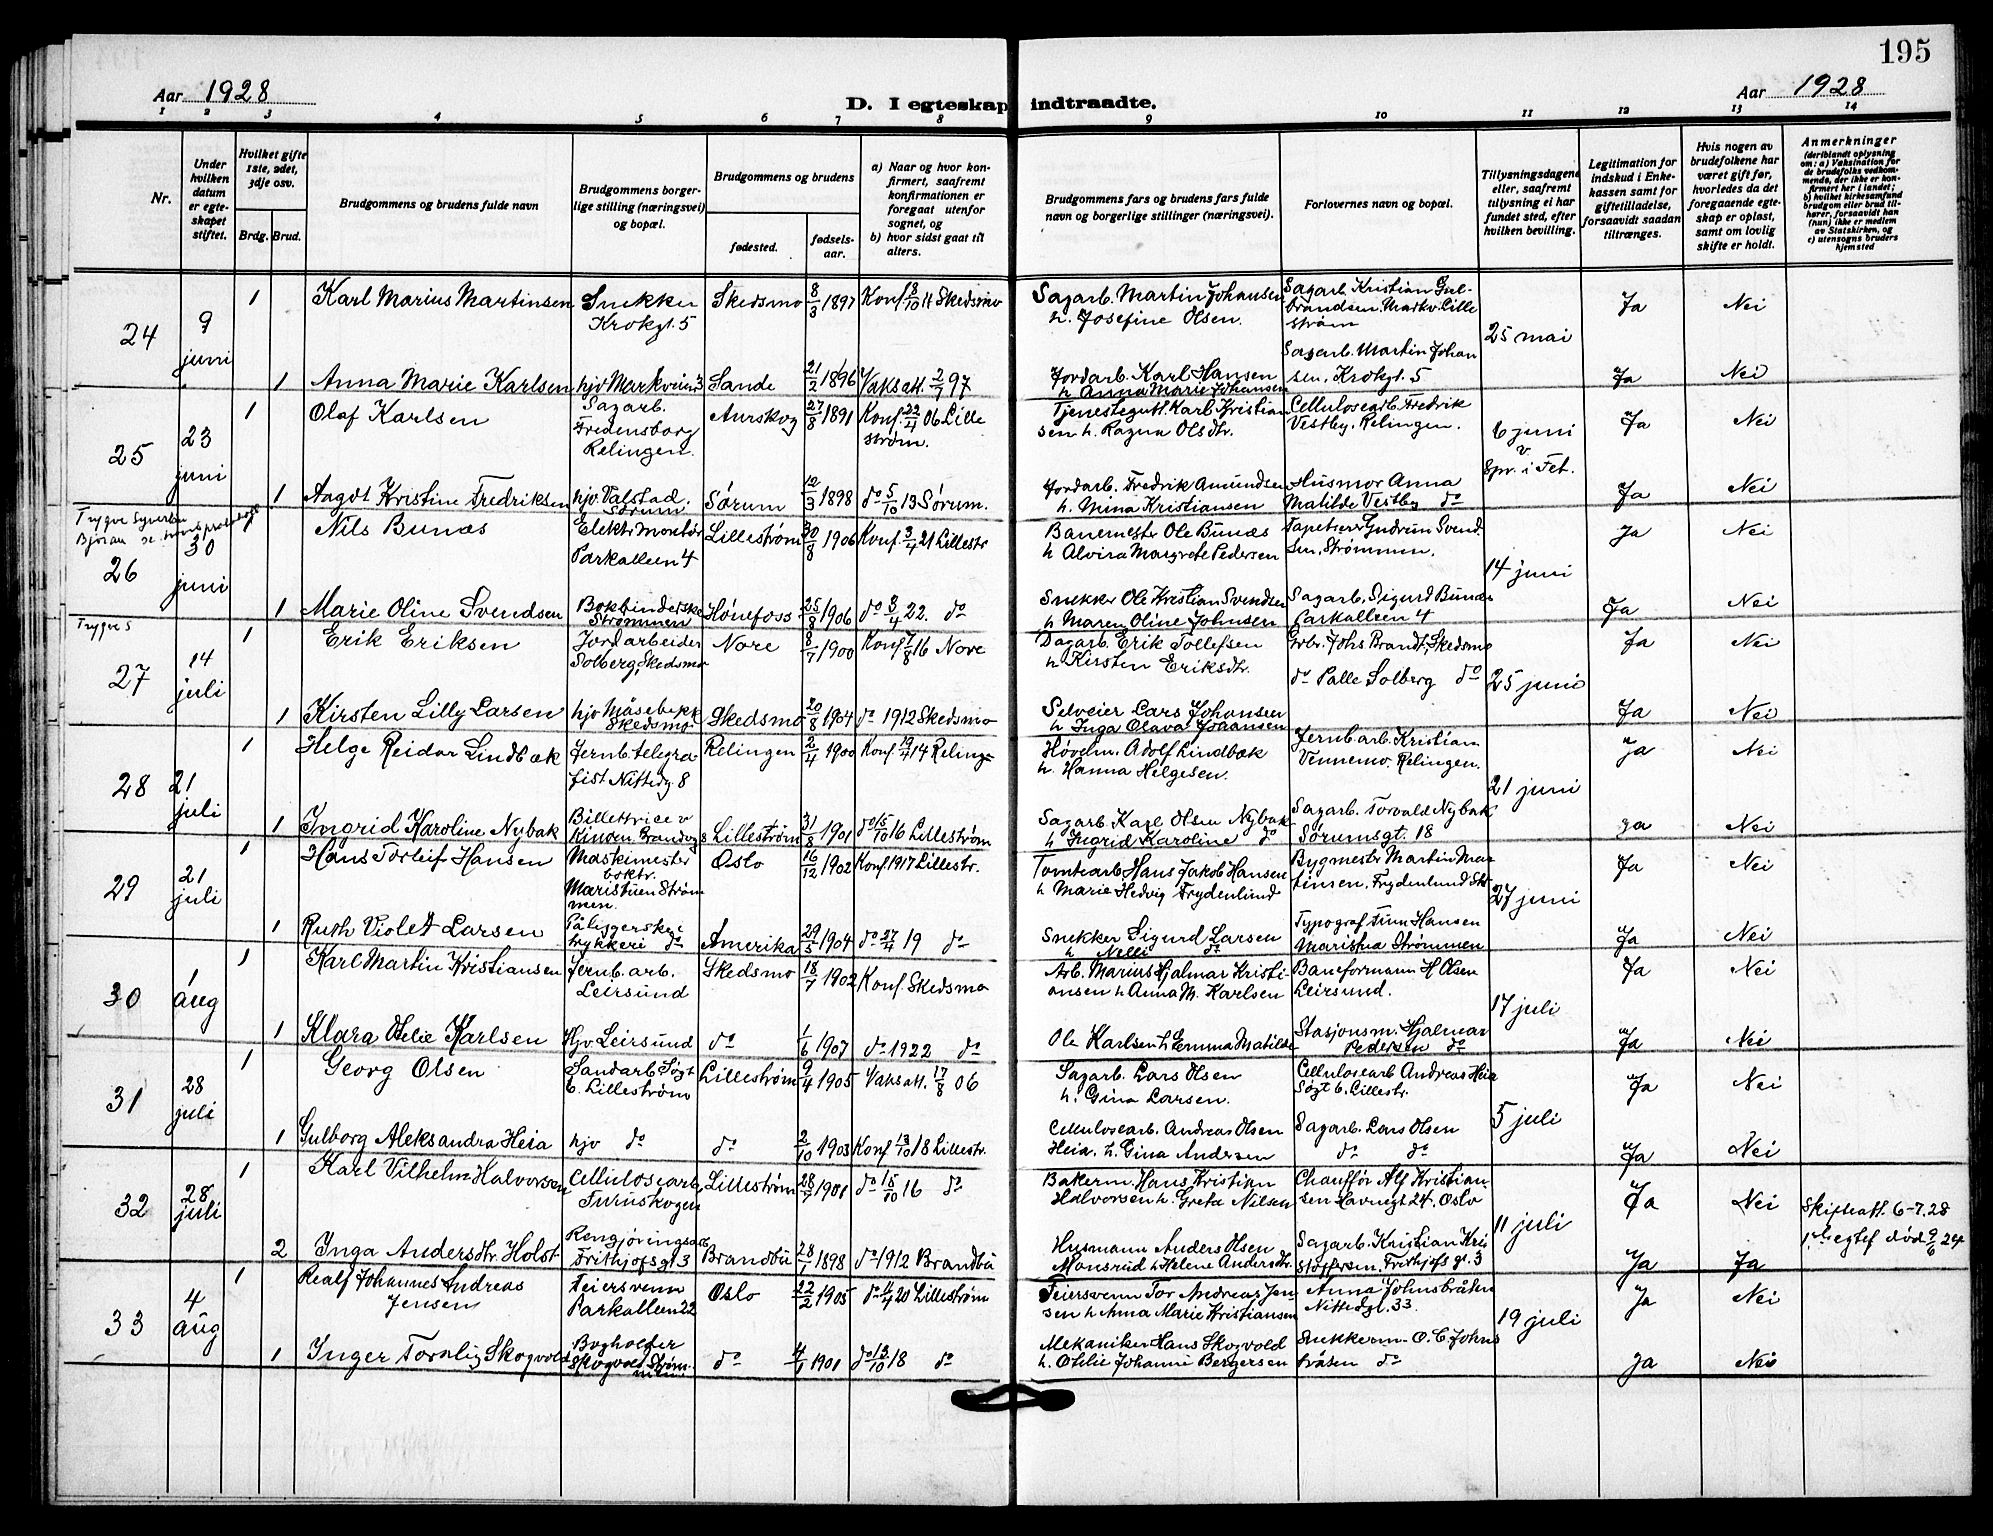 195
Aar 1928
D. I egteskap indtraadte.
Aar 1928
1 2 3 4 5 6 7 8 9 10 11 12 13 14
Nr.
Under hvilken datum er egteskapet stiftet.
Hvilket gifte 1ste, 2det, 3dje osv.
Brdg. Brud.
Brudgommens og brudens fulde navn
Brudgommens borgerlige stilling (næringsvei) og bopæl.
Brudgommens og brudens
fødested.
fødselsaar.
a) Naar og hvor konfirmert, saafremt konfirmationen er foregaat utenfor sognet, og
b) hvor sidst gaat til alters.
Brudgommens fars og brudens fars fulde navn og borgerlige stillinger (næringsvei).
Forlovernes navn og bopæl.
Tillysningsdagene eller, saafremt tillysning ei har fundet sted, efter hvilken bevilling.
Legitimation for indskud i Enkekassen samt for giftetilladelse, forsaavidt saadan tiltrænges.
Hvis nogen av brudefolkene har været gift før, hvorledes da det foregaaende egteskap er opløst, samt om lovlig skifte er holdt.
Anmerkninger
(deriblandt oplysning om: a) Vaksination for de brudefolks vedkommende, der ikke er konfirmert her i landet; b) hvilket kirkesamfund brudgom eller brud tilhører, forsaavidt han (hun) ikke er medlem av Statskirken, og c) utensogns bruders hjemsted
24 9 juni 1 Karl Marius Martinsen Snekker Krokgt. 5 Skedsmo 8/3 1897 Konf. 8/10 11 Skedsmo Sagarb. Martin Johansen h. Josefine Olsen. Sagarb. Kristian Gulbrandsen. Markv. Lillestrøm 25 mai Ja Nei
1 Anna Marie Karlsen hjv Markveien 3 Sande 21/2 1896 Vaksatt. 2/7 97 Jordarb. Karl Hansen h Anna Marie Johansen Sagarb. Martin Johansen, Krokgt. 5 Ja Nei
25 23 juni 1 Olaf Karlsen Sagarb. Fredensborg Relingen. Aurskog 27/8 1891 Konf. 22/4 06 Lillestrøm. Tjenestegutt. Karl Kristiansen h. Ragna Olsdtr. Cellulosearb. Fredrik Vestby, Relingen. 6 juni v Spr. i Fet. Ja Nei
1 Aagot Kristine Fredriksen hjv. Valstad. Sørum Sørum 12/3 1898 do 5/10 13 Sørum. Jordarb. Fredrik Amundsen h. Mina Kristiansen Husmor Anna Matilde Vestby do Ja Nei
26 30 juni Nils Bunæs Elektr. Montør Parkalleen 4 Lillestrøm 30/8 1906 Konf. 3/4 21 Lillestr Banemester Ole Bunæs h Alvira Margrete Pedersen Tapetserer Gudrun Svendsen, Strømmen. 14 juni Ja Nei
1 Marie Oline Svendsen Bokbinderske Strømmen Hønefoss 25/8 1906 do 3/4 22. do Snekker Ole Kristian Svendsen h Maren Oline Johnsen Sagarb. Sigurd Bunæs Parkalleen 4 Ja Nei
27 14 juli 1 Erik Eriksen Jordarbeider Solberg, Skedsmo Nore 8/7 1900 Konf. 7/8 16 Nore Dagarb. Erik Tollefsen h Kirsten Eriksdtr. Grbr. Johs Brandt, Skedsmo 25 juni Ja Nei
1 Kirsten Lilly Larsen hjv Måsebekk Skedsmo Skedsmo 20/8 1904 do 1912 Skedsmo Selveier Lars Johansen h Inga Olava Johansen do Palle Solberg do Ja Nei
28 21 juli 1 Helge Reidar Lindbæk Jernb. telegrafist Nittedg 8 Relingen 2/4 1900 Konf. 19/4 14 Reling- Høvelm. Adolf Lindbæk h. Hanna Helgesen. Jernb. arb. Kristian Vennemo. Relingen. 21 juni Ja Nei
1 Ingrid Karoline Nybak Billettrice v Kinoen Brandvg 8 Lillestrøm 31/8 1901 do 15/10 16 Lillestrøm Sagarb Karl Olsen Nybak h Ingrid Karoline do Sagarb. Torvald Nybak Sørumsgt. 18 Ja Nei
29 21 juli 1 Hans Torleif Hansen Maskimester boktr. Maristuen Strømmen. Oslo 16/12 1902 Konf 1917 Lillestr. Tomtearb. Hans Jakob Hansen h Marie Hedvig Frydenlund Bygmester Martin Martinsen, Frydenlund Str. 27 juni Ja Nei
1 Ruth Violet Larsen Påliggerske i trykkeri do Amerika 29/5 1904 do 27/4 19 do Snekker Sigurd Larsen h Nelli do Typograf Finn Hansen Maristua Strømmen Ja Nei
30 1 aug 1 Karl Martin Kristiansen Jernb. arb. Leirsund Skedsmo 18/7 1902 Konf Skedsmo Arb. Marius Hjalmar Kristiansen h Anna M. Karlsen Baneformann H Olsen Leirsund. 17 juli Ja Nei
1 Klara Otelie Karlsen Hjv Leirsund do 1/6 1907 do 1922 do Ole Karlsen h Emma Matilde Stasjonsm. Hjalmar Pedersen do Ja Nei
31 28 juli 1 Georg Olsen Sandarb Søgt 6. Lillestrøm Lillestrøm 9/4 1905 Vaksatt. 17/8 06 Sagarb. Lars Olsen h. Gina Larsen. Cellulosearb Andreas Heia Søgt 6. Lillestr. 5 juli Ja Nei
1 Gulborg Aleksandra Heia hjv do do 2/10 1903 Konf 13/10 18 Lillestr. Cellulosearb. Andreas Olsen Heia, h. Gina Andersen Sagarb. Lars Olsen do do Ja Nei
32 28 juli 1 Karl Vilhelm Halvorsen Cellulosearb Furuskogen Lillestrøm 28/7 1901 do 15/10 16 do Bakerm. Hans Kristian Halvorsen h. Greta Nilsen Chauffør Alf Kristiansen Havnegt 24, Oslo 11 juli Ja Nei Skifteatt. 6-7.28
2 Inga Andersdtr Holst Rengjøringsarb Frithjofsgt 3 Brandbu 28/1 1898 do 1912 Brandbu Husmann Anders Olsen Monsrud h Helene Andersdtr. Sagarb. Kristian Kristoffersen. Frithjofs gt. 3 Ja Ja 1ste egtef død 9/6 24
33 4 aug 1 Realf Johannes Andreas Jensen Feiersvenn Parkalleen 22 Oslo 22/2 1905 do 11/4 20 Lillestrøm Feiersvenn Tor Andreas Jensen h Anna Marie Kristiansen Anna Johnsbråten Nittedgt. 33. 19 juli Ja Nei
1 Inger Tornlig Skogvold Bogholder Skogvold Strømmen. do 4/1 1901 do 13/10 18 do Mekaniker Hans Skogvold h. Otilie Johanne Bergersen Snekkerm. O. C. Johnsbråten do Ja Nei